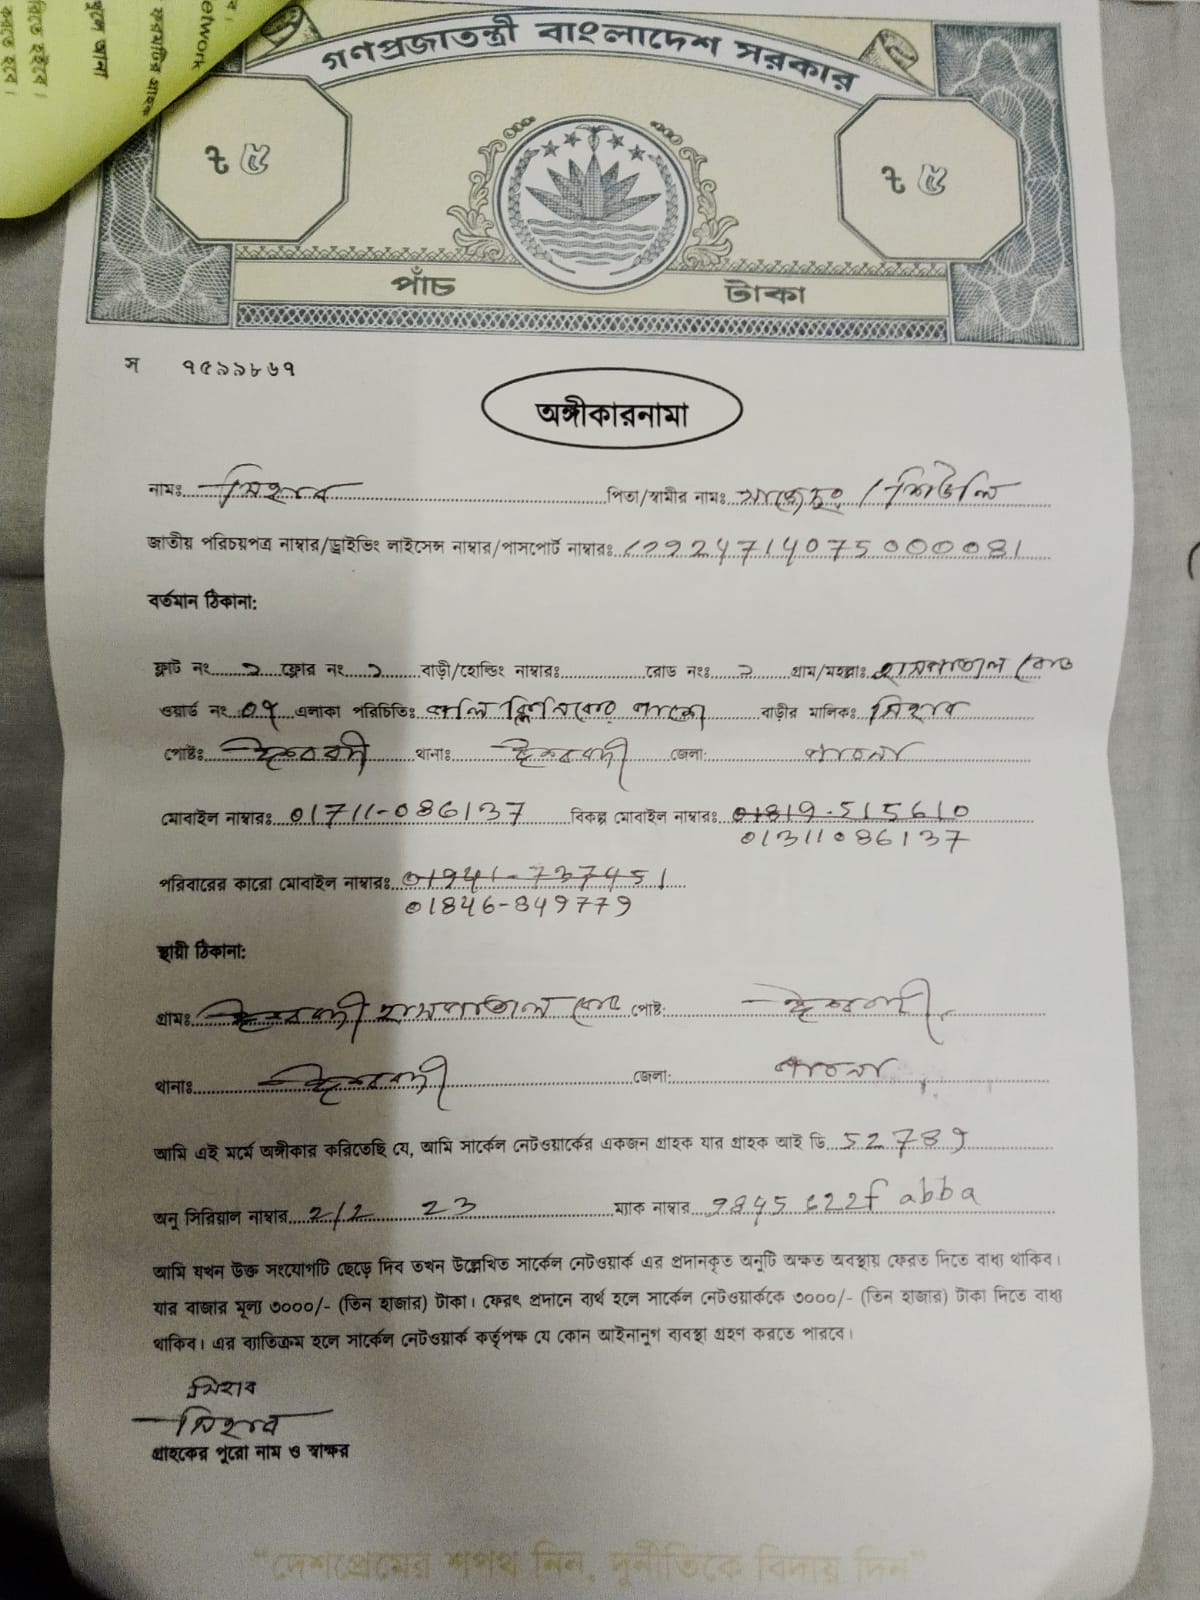 Network
গণপ্রজাতন্ত্রী বাংলাদেশ সরকার
৳ ৫ ৳ ৫
পাঁচ টাকা
স ৭৫৯৯৮৬৭
অঙ্গীকারনামা
নামঃ শিহাব পিতা/স্বামীর নামঃ / শিউলি
জাতীয় পরিচয়পত্র নাম্বার/ড্রাইভিং লাইসেন্স নাম্বার/পাসপোর্ট নাম্বারঃ
বর্তমান ঠিকানা:
ফ্লাট নং ২ ফ্লোর নং ১ বাড়ী/হোল্ডিং নাম্বারঃ রোড নংঃ ২ গ্রাম/মহল্লাঃ হাসপাতাল রোড
ওয়ার্ড নং 07 এলাকা পরিচিতিঃ পলি ক্লিনিকের পাশে বাড়ীর মালিকঃ শিহাব
পোষ্টঃ ঈশ্বরদী থানাঃ ঈশ্বরদী জেলা: পাবনা
মোবাইল নাম্বারঃ 01711-086137 বিকল্প মোবাইল নাম্বারঃ 01819-515610
01311086137
পরিবারের কারো মোবাইল নাম্বারঃ 01941-737451
01846-849779
স্থায়ী ঠিকানা:
গ্রামঃ ঈশ্বরদী হাসপাতাল রোড পোষ্ট: ঈশ্বরদী
থানাঃ ঈশ্বরদী জেলা: পাবনা
আমি এই মর্মে অঙ্গীকার করিতেছি যে, আমি সার্কেল নেটওয়ার্কের একজন গ্রাহক যার গ্রাহক আই ডি 52789
অনু সিরিয়াল নাম্বার 2/2 23 ম্যাক নাম্বার 9845622f abba
আমি যখন উক্ত সংযোগটি ছেড়ে দিব তখন উল্লেখিত সার্কেল নেটওয়ার্ক এর প্রদানকৃত অনুটি অক্ষত অবস্থায় ফেরত দিতে বাধ্য থাকিব।
যার বাজার মূল্য ৩০০০/- (তিন হাজার) টাকা। ফেরৎ প্রদানে ব্যর্থ হলে সার্কেল নেটওয়ার্ককে ৩০০০/- (তিন হাজার) টাকা দিতে বাধ্য
থাকিব। এর ব্যাতিক্রম হলে সার্কেল নেটওয়ার্ক কর্তৃপক্ষ যে কোন আইনানুগ ব্যবস্থা গ্রহণ করতে পারবে।
শিহাব
শিহাব
গ্রাহকের পুরো নাম ও স্বাক্ষর
“দেশপ্রেমের শপথ নিন, দুর্নীতিকে বিদায় দিন”